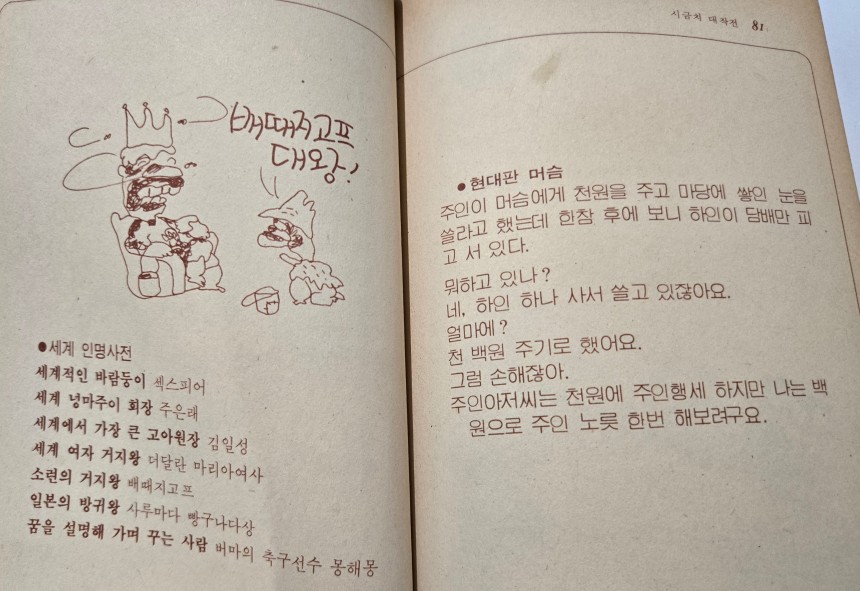 배때지고프
대왕!
●세계 인명사전
세계적인 바람둥이 섹스피어
세계 넝마주이 회장 주은래
세계에서 가장 큰 고아원장 김일성
세계 여자 거지왕 더달란 마리아여사
소련의 거지왕 배때지고프
일본의 방귀왕 사루마다 빵구나다상
꿈을 설명해 가며 꾸는 사람 버마의 축구선수 몽해몽
시금치 대작전 81
●현대판 머슴
주인이 머슴에게 천원을 주고 마당에 쌓인 눈을
쓸라고 했는데 한참 후에 보니 하인이 담배만 피
고 서 있다.
뭐하고 있나?
네, 하인 하나 사서 쓸고 있잖아요.
얼마에?
천 백원 주기로 했어요.
그럼 손해잖아.
주인아저씨는 천원에 주인행세 하지만 나는 백
원으로 주인 노릇 한번 해보려구요.